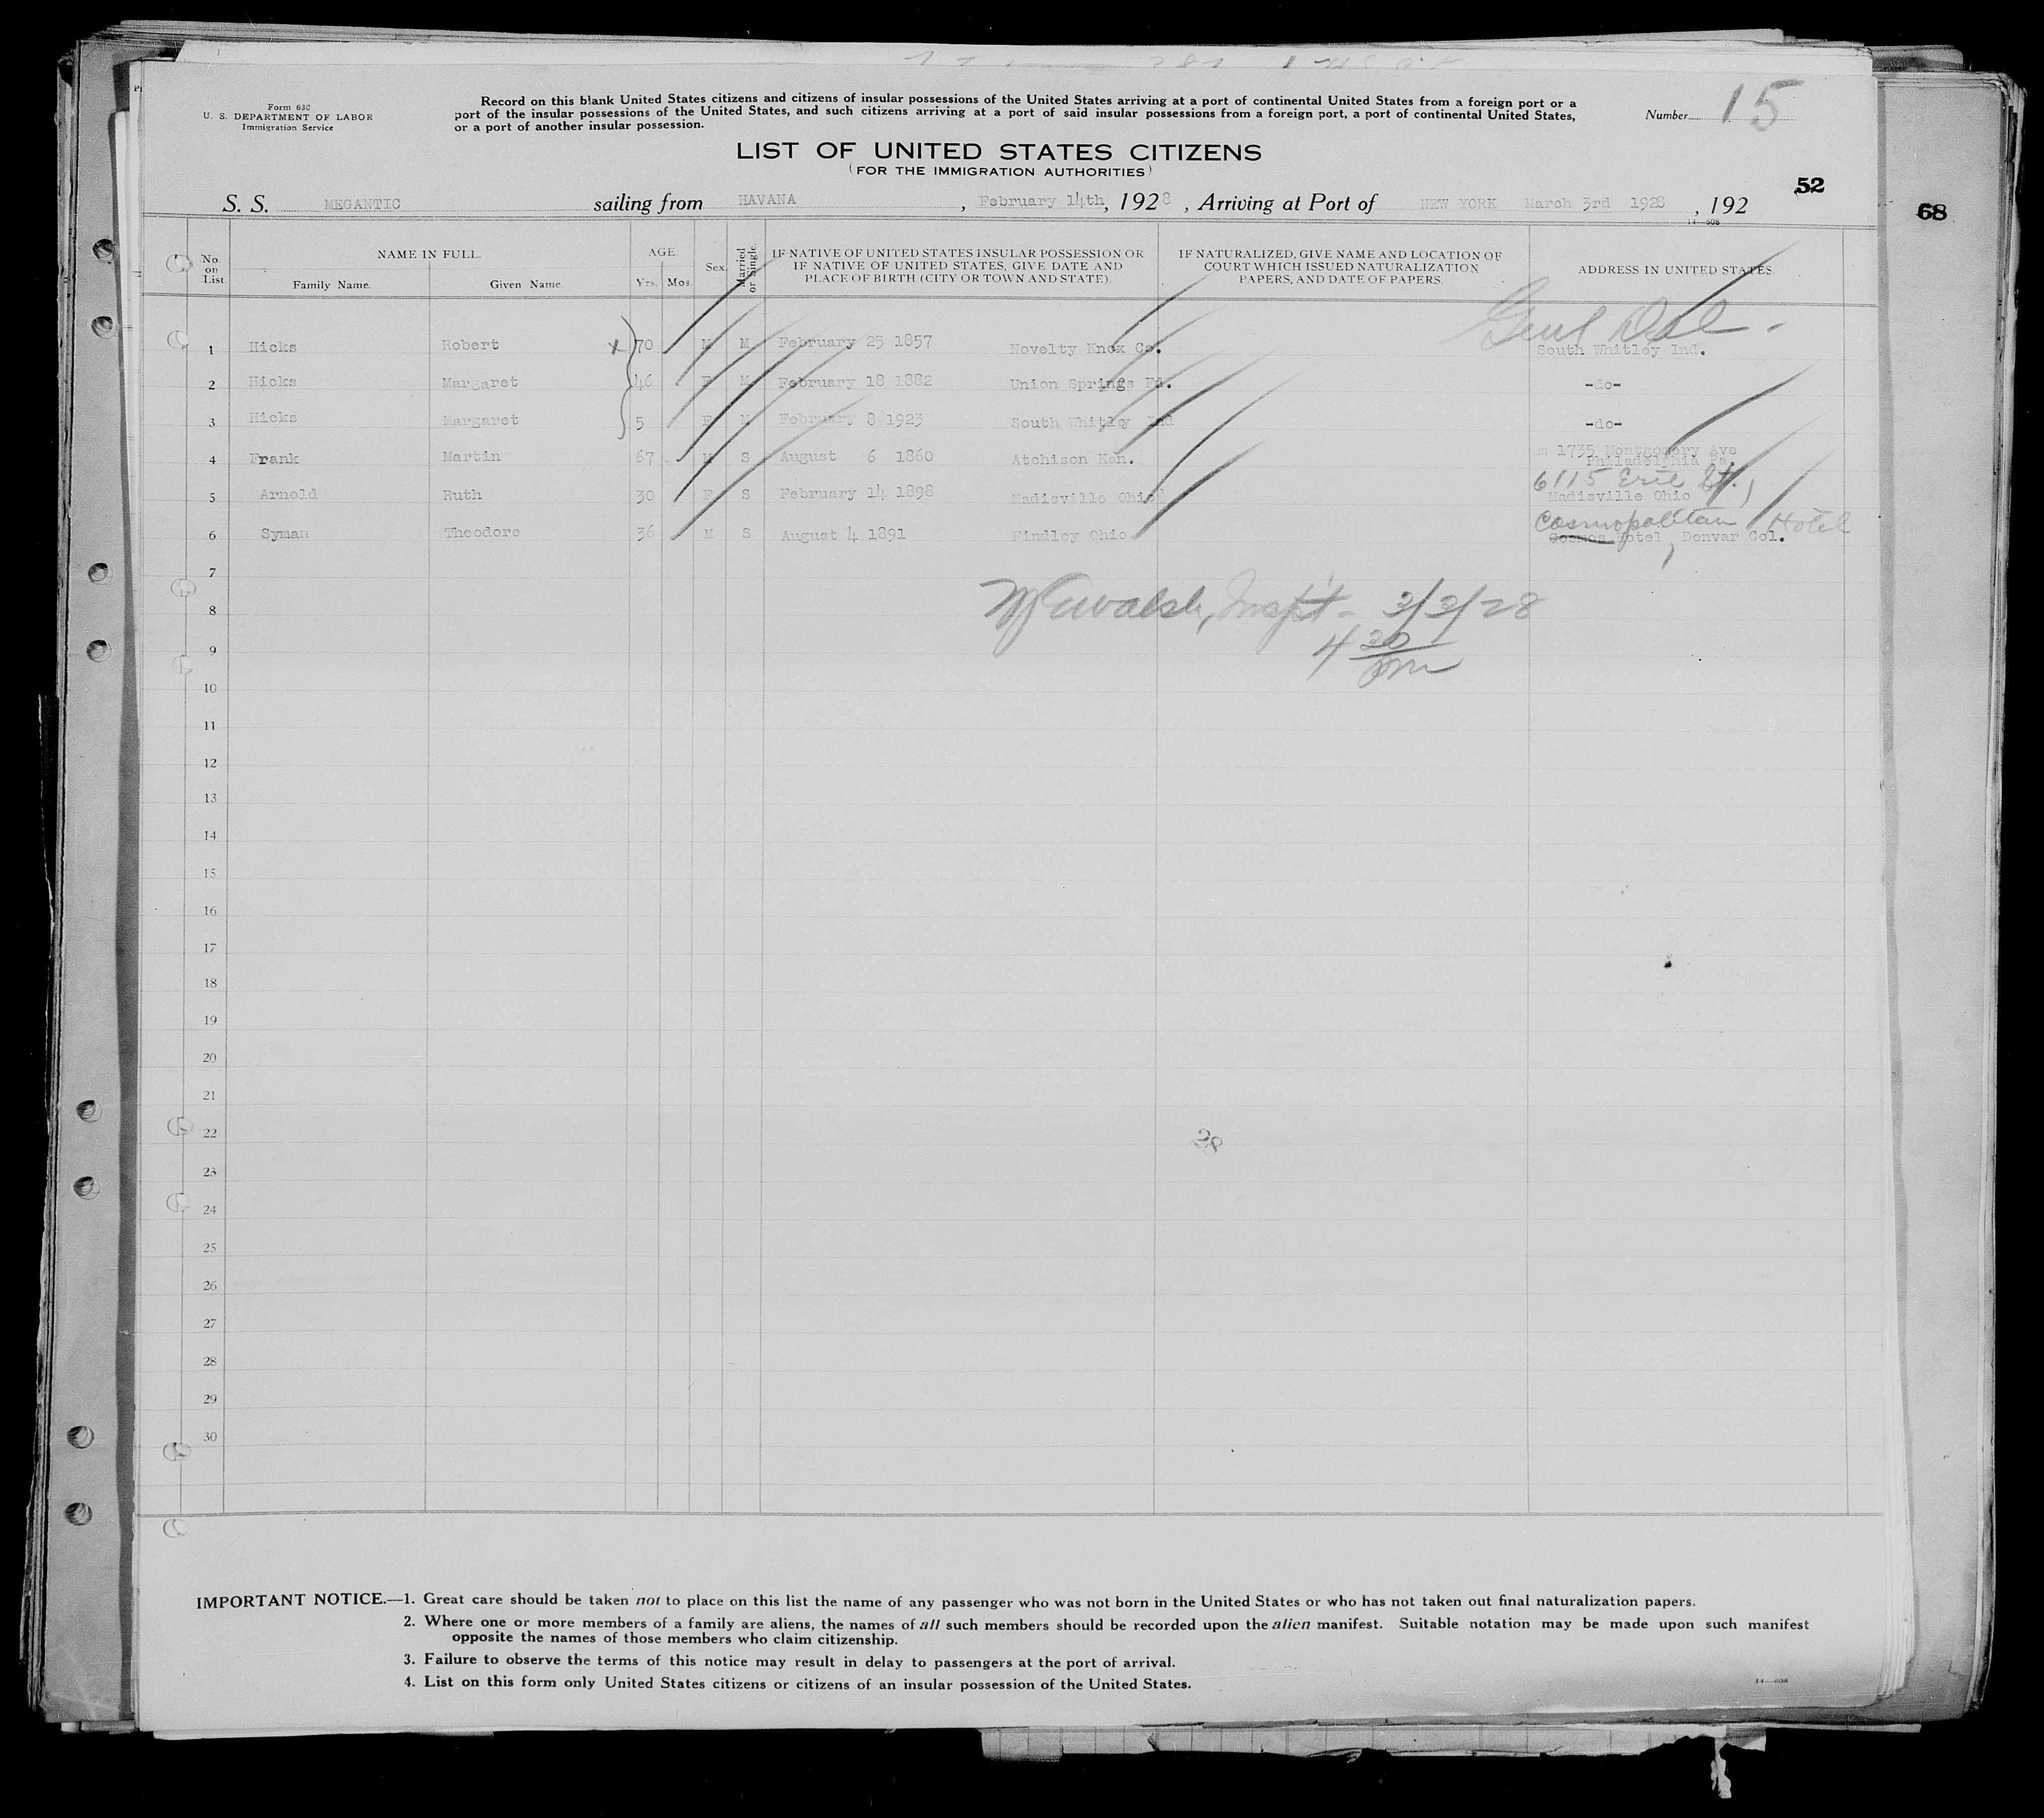 Form 630
U. S. DEPARTMENT OF LABOR
Immigration Service
Record on this blank United States citizens and citizens of insular possessions of the United States arriving at a port of continental United States from a foreign port or a
port of the insular possessions of the United States, and such citizens arriving at a port of said insular possessions from a foreign port, a port of continental United States,
or a port of another insular possession.
Number 15
LIST OF UNITED STATES CITIZENS
(FOR THE IMMIGRATION AUTHORITIES)
52
68
S. S. MEGANTIC sailing from HAVANA, February 14th, 1928, Arriving at Port of NEW YORK March 3rd 1928, 192
14—608
No. on List
NAME IN FULL.
Family Name.
Given Name.
AGE.
Yrs. Mos.
Sex.
Married or Single.
IF NATIVE OF UNITED STATES INSULAR POSSESSION OR
IF NATIVE OF UNITED STATES, GIVE DATE AND
PLACE OF BIRTH (CITY OR TOWN AND STATE).
IF NATURALIZED, GIVE NAME AND LOCATION OF
COURT WHICH ISSUED NATURALIZATION
PAPERS, AND DATE OF PAPERS.
ADDRESS IN UNITED STATES.
Genl Del -
1 Hicks Robert x 70 M M February 25 1857 Novelty Knox Co. South Whitley Ind.
2 Hicks Margaret 46 F M February 18 1882 Union Springs Fd. -do-
3 Hicks Margaret 5 F M February 8 1923 South Whitley Ind -do-
4 Frank Martin 67 M S August 6 1860 Atchison Kan. m 1735 Montgomery Ave
Philadelphia Pa
6115 Erie St.,
5 Arnold Ruth 30 F S February 14 1898 Madisville Ohio Madisville Ohio
Cosmopolitan Hotel
6 Syman Theodore 36 M S August 4 1891 Findley Ohio Cosmos Hotel, Denvar Col.
7
8 Walsh, Inspt - 3/3/28
9 4 30 pm
10
11
12
13
14
15
16
17
18
19
20
21
22 28
23
24
25
26
27
28
29
30
IMPORTANT NOTICE.—1. Great care should be taken not to place on this list the name of any passenger who was not born in the United States or who has not taken out final naturalization papers.
2. Where one or more members of a family are aliens, the names of all such members should be recorded upon the alien manifest. Suitable notation may be made upon such manifest
opposite the names of those members who claim citizenship.
3. Failure to observe the terms of this notice may result in delay to passengers at the port of arrival.
4. List on this form only United States citizens or citizens of an insular possession of the United States.
14—608